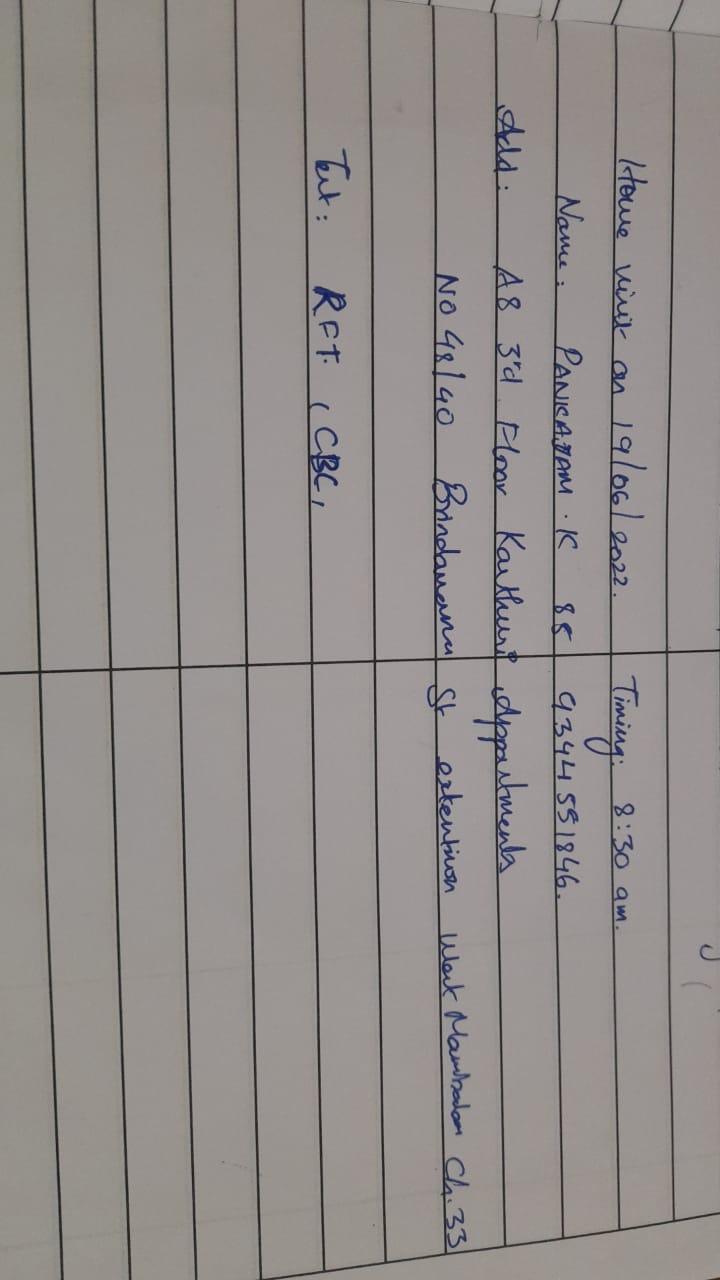 Home visit on 19/06/2022. Timing: 8:30 am.
Name: PANKAJAM . K 85 9344551846.
Add: A8 3rd Floor Kasthuri Appartments
No 48/40 Brindavana St extention West Mambalam Ch. 33
Test: RFT, CBC,